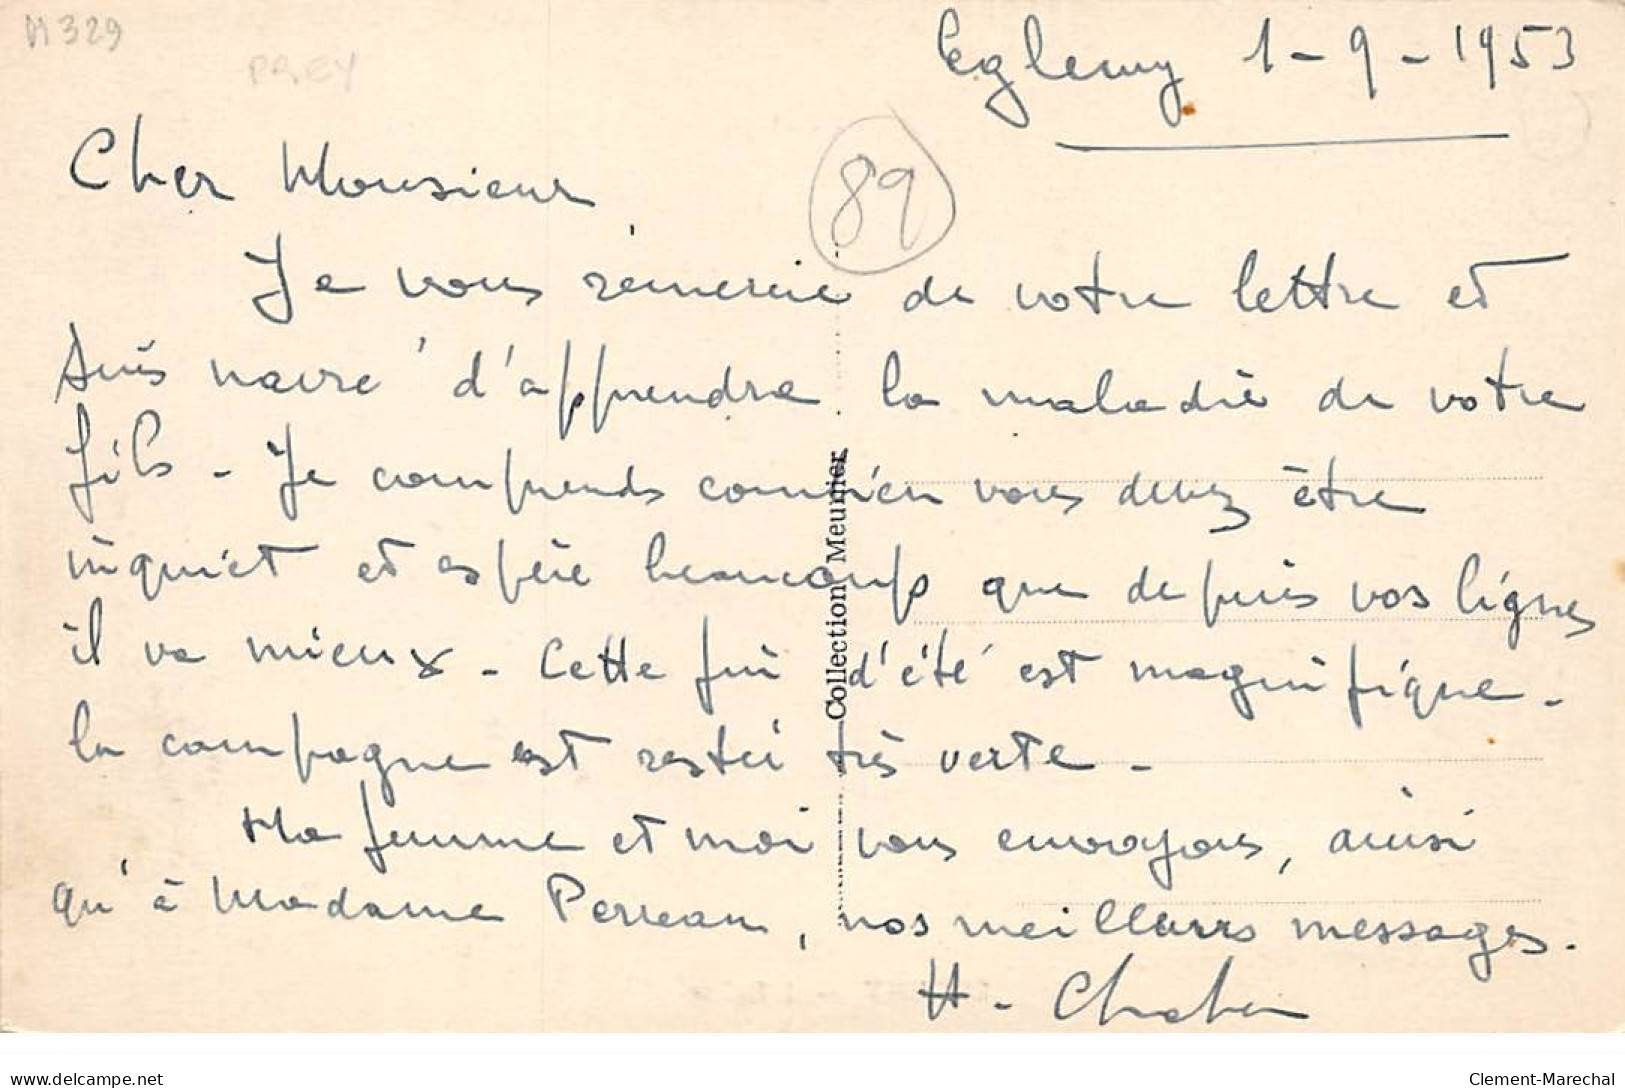 H 329
PREY
Egleny 1-9-1953
89
Cher Monsieur,
Je vous remercie de votre lettre et
suis navré d'apprendre la maladie de votre
fils - Je comprends combien vous devez être
inquiet et espère beaucoup que depuis vos lignes
il va mieux - Cette fin d'été est magnifique -
la campagne est restée très verte -
Ma femme et moi vous envoyons, ainsi
qu'à Madame Perreau, nos meilleurs messages.
H -
Collection Meunier
delcampe.net
Clement-Marechal